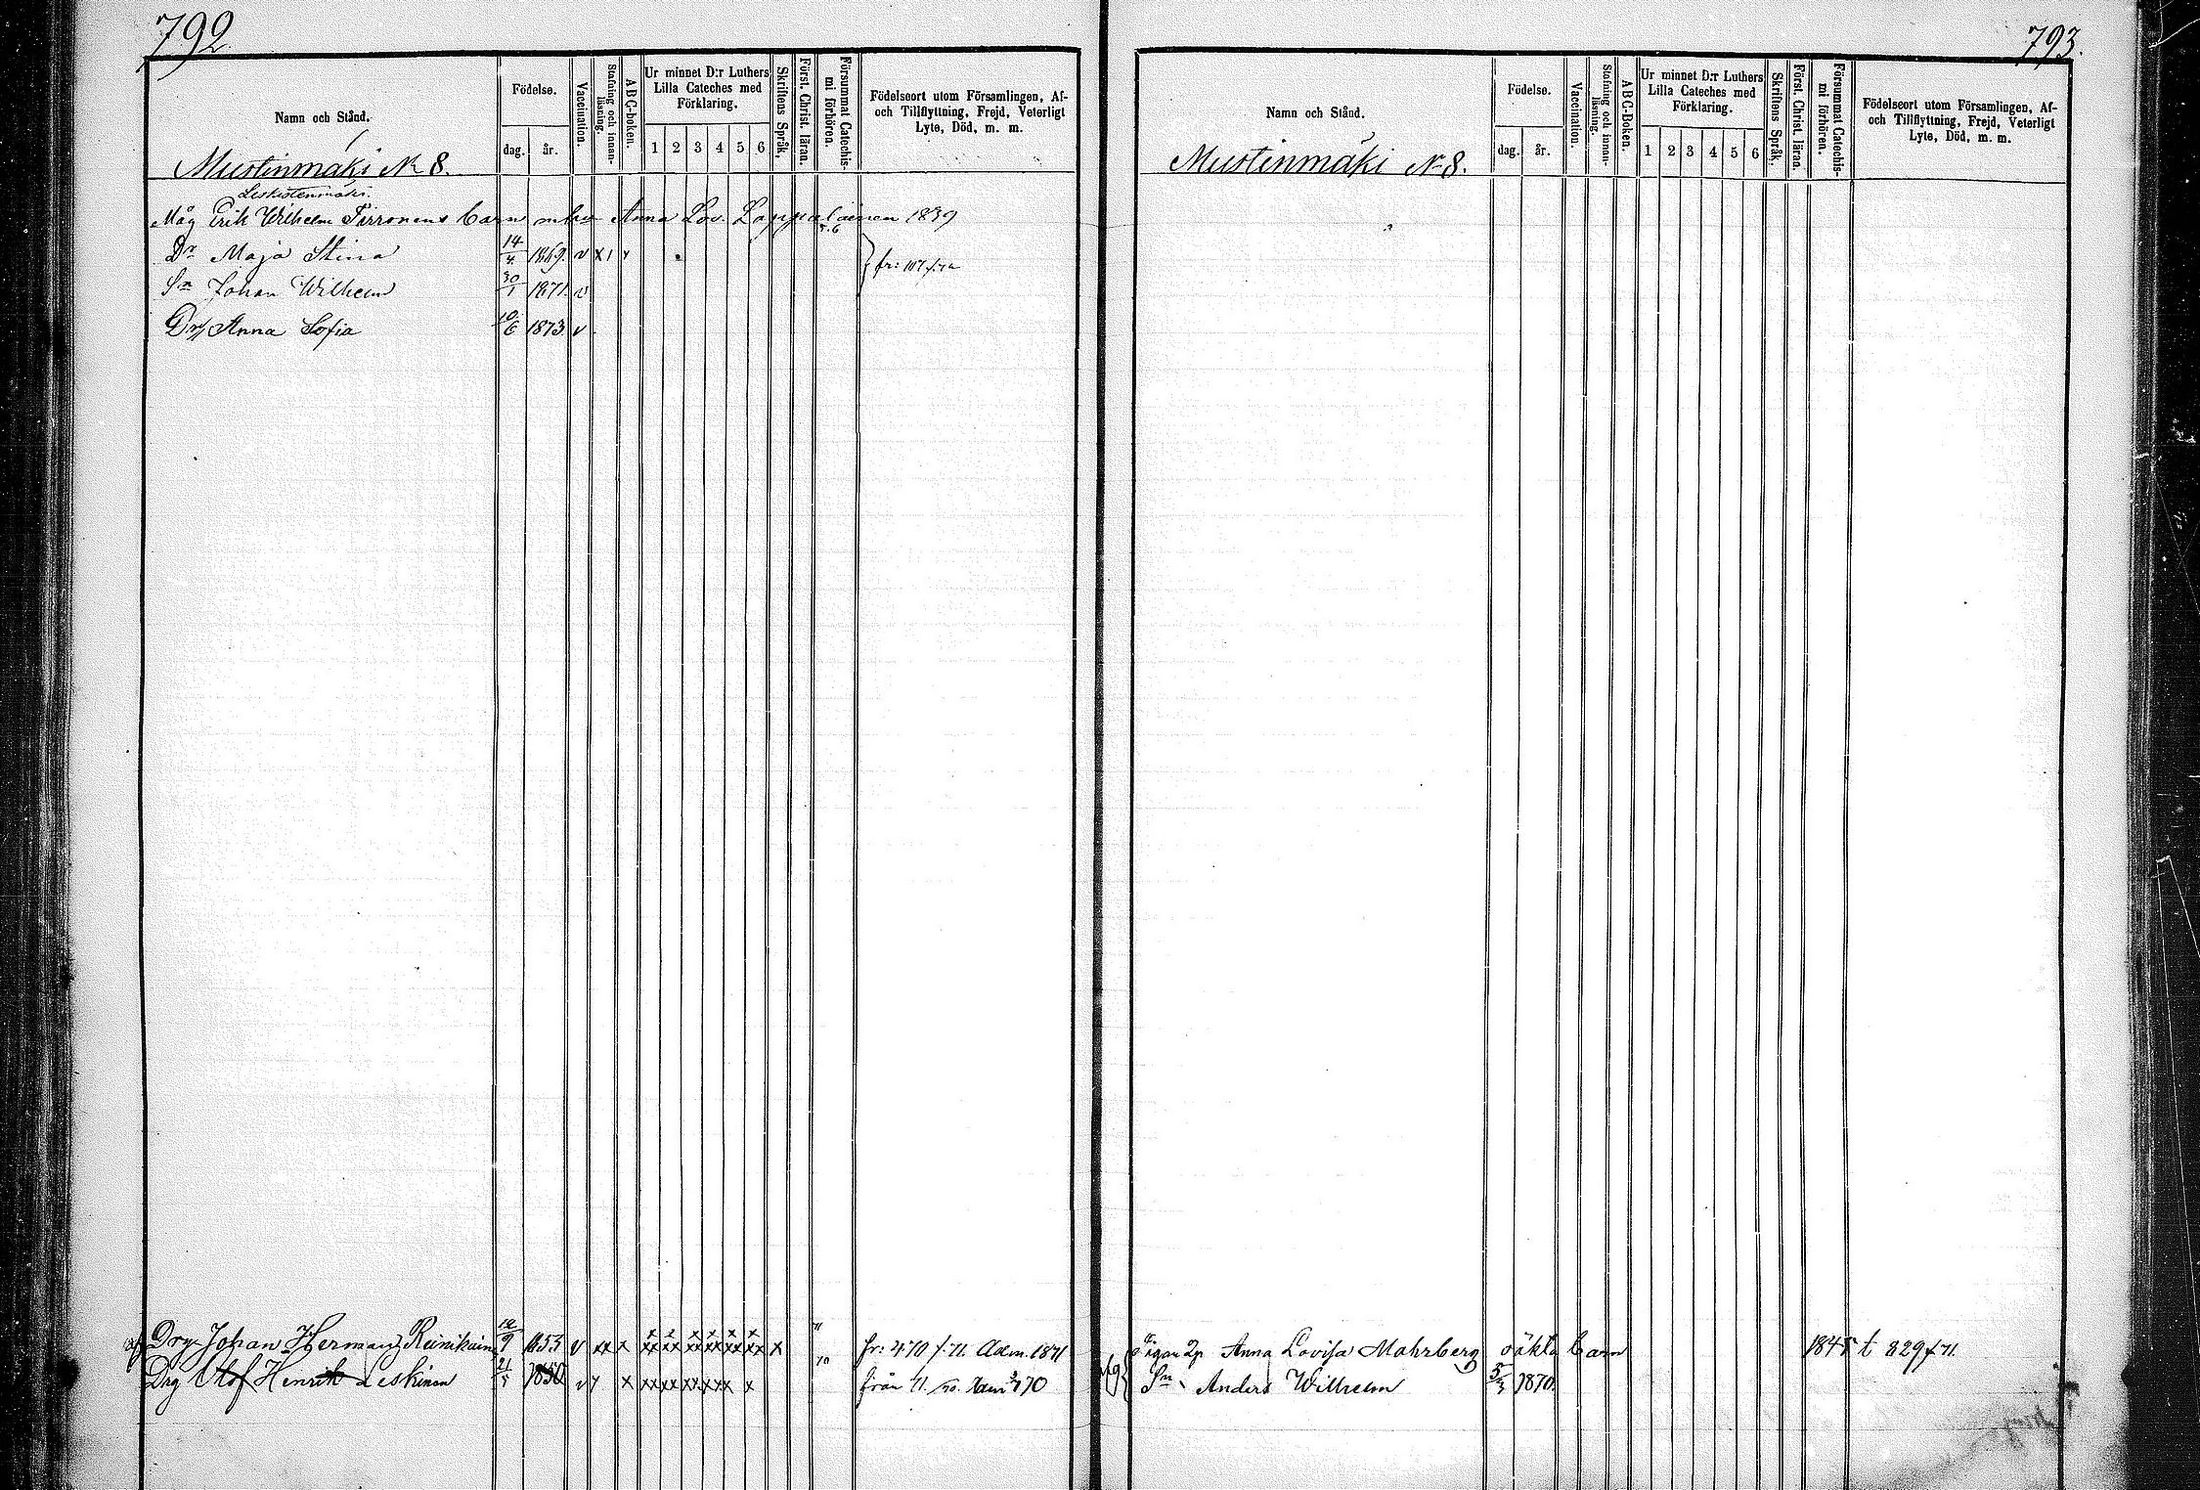 792
Namn och Stånd.
Födelse.
dag.
år.
Vaccination.
Stafning och innan-
läsning.
A B C-boken.
Ur minnet D:r Luthers
Lilla Cateches med
Förklaring.
1 2 3 4 5 6
Skriftens Språk.
Först. Christ. läran.
Försummat Catechis-
mi förhören.
Födelseort utom Församlingen, Af-
och Tillflyttning, Frejd, Veterligt
Lyte, Död, m. m.
Mustinmäki № 8.
Leskistenmäki
Måg Erik Wilhelm Tirronens barn mhu Anna Lov. Lappalainen 1839
Dr Maja Stina 14/4 1869. v x 1
Sn Johan Wilhelm 30/1 1871. v
Dr Anna Sofia 10/6 1873. v
Drg Johan Herman Reinikain 9 1853 v xx x xx xx xx xx xx xx x fr: 470 f. 71. Adm. 1871
Drg Olof Henrik Leskinen 1850 v x xx xx xx xx x x från 11. 70
793.
Namn och Stånd.
Födelse.
dag.
år.
Vaccination.
Stafning och innan-
läsning.
A B C-Boken.
Ur minnet D:r Luthers
Lilla Cateches med
Förklaring.
1 2 3 4 5 6
Skriftens Språk.
Först. Christ. läran.
Försummat Catechis-
mi förhören.
Födelseort utom Församlingen, Af-
och Tillflyttning, Frejd, Veterligt
Lyte, Död, m. m.
Mustinmäki № 8.
Anna Lovisa Mahrberg oäkta barn 1845 t 829 f 71.
Sn Anders Wilhelm 5/3 1870.